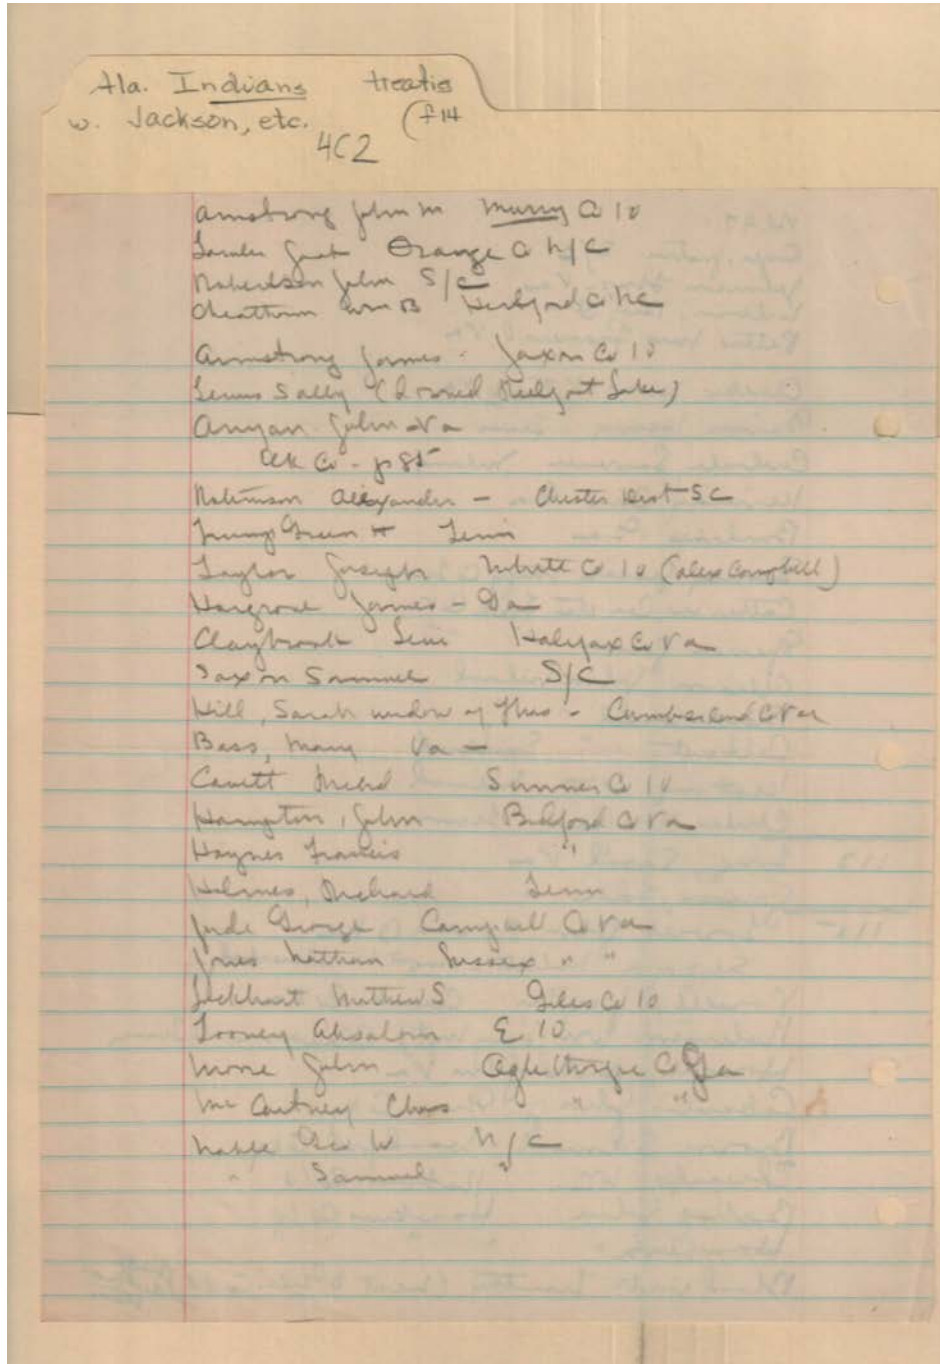 Ala. Indians treatis
w. Jackson, etc. (f14
4C2
Armstrong John M Murry Co 10
Jack Orange C N/C
Robertson John S/C
Cheatham Wm B C NC
Armstrong James - Jaxon Co 10
Lewis Sally (
John Va
Co - p 85
Robinson Alexander - Chester Dist S C
Green
Taylor Joseph White Co 10 (Alex Campbell)
Hargrove James - Ga
Claybrook Halifax C Va
Saxon Samuel S/C
Hill, Sarah widow of Thos - Cumberland C Va
Bass, Mary Va -
Cavett Sumner Co 10
Hampton, John Bedford C Va
Haynes Francis "
Holmes, Richard Tenn
Jude George Campbell C Va
Jones Nathan Sussex " "
Lockhart Matthew S Giles Co 10
Looney Absalom E 10
More John Oglethorpe C Ga
McCartney Chas " "
Geo W N/C
" Samuel "